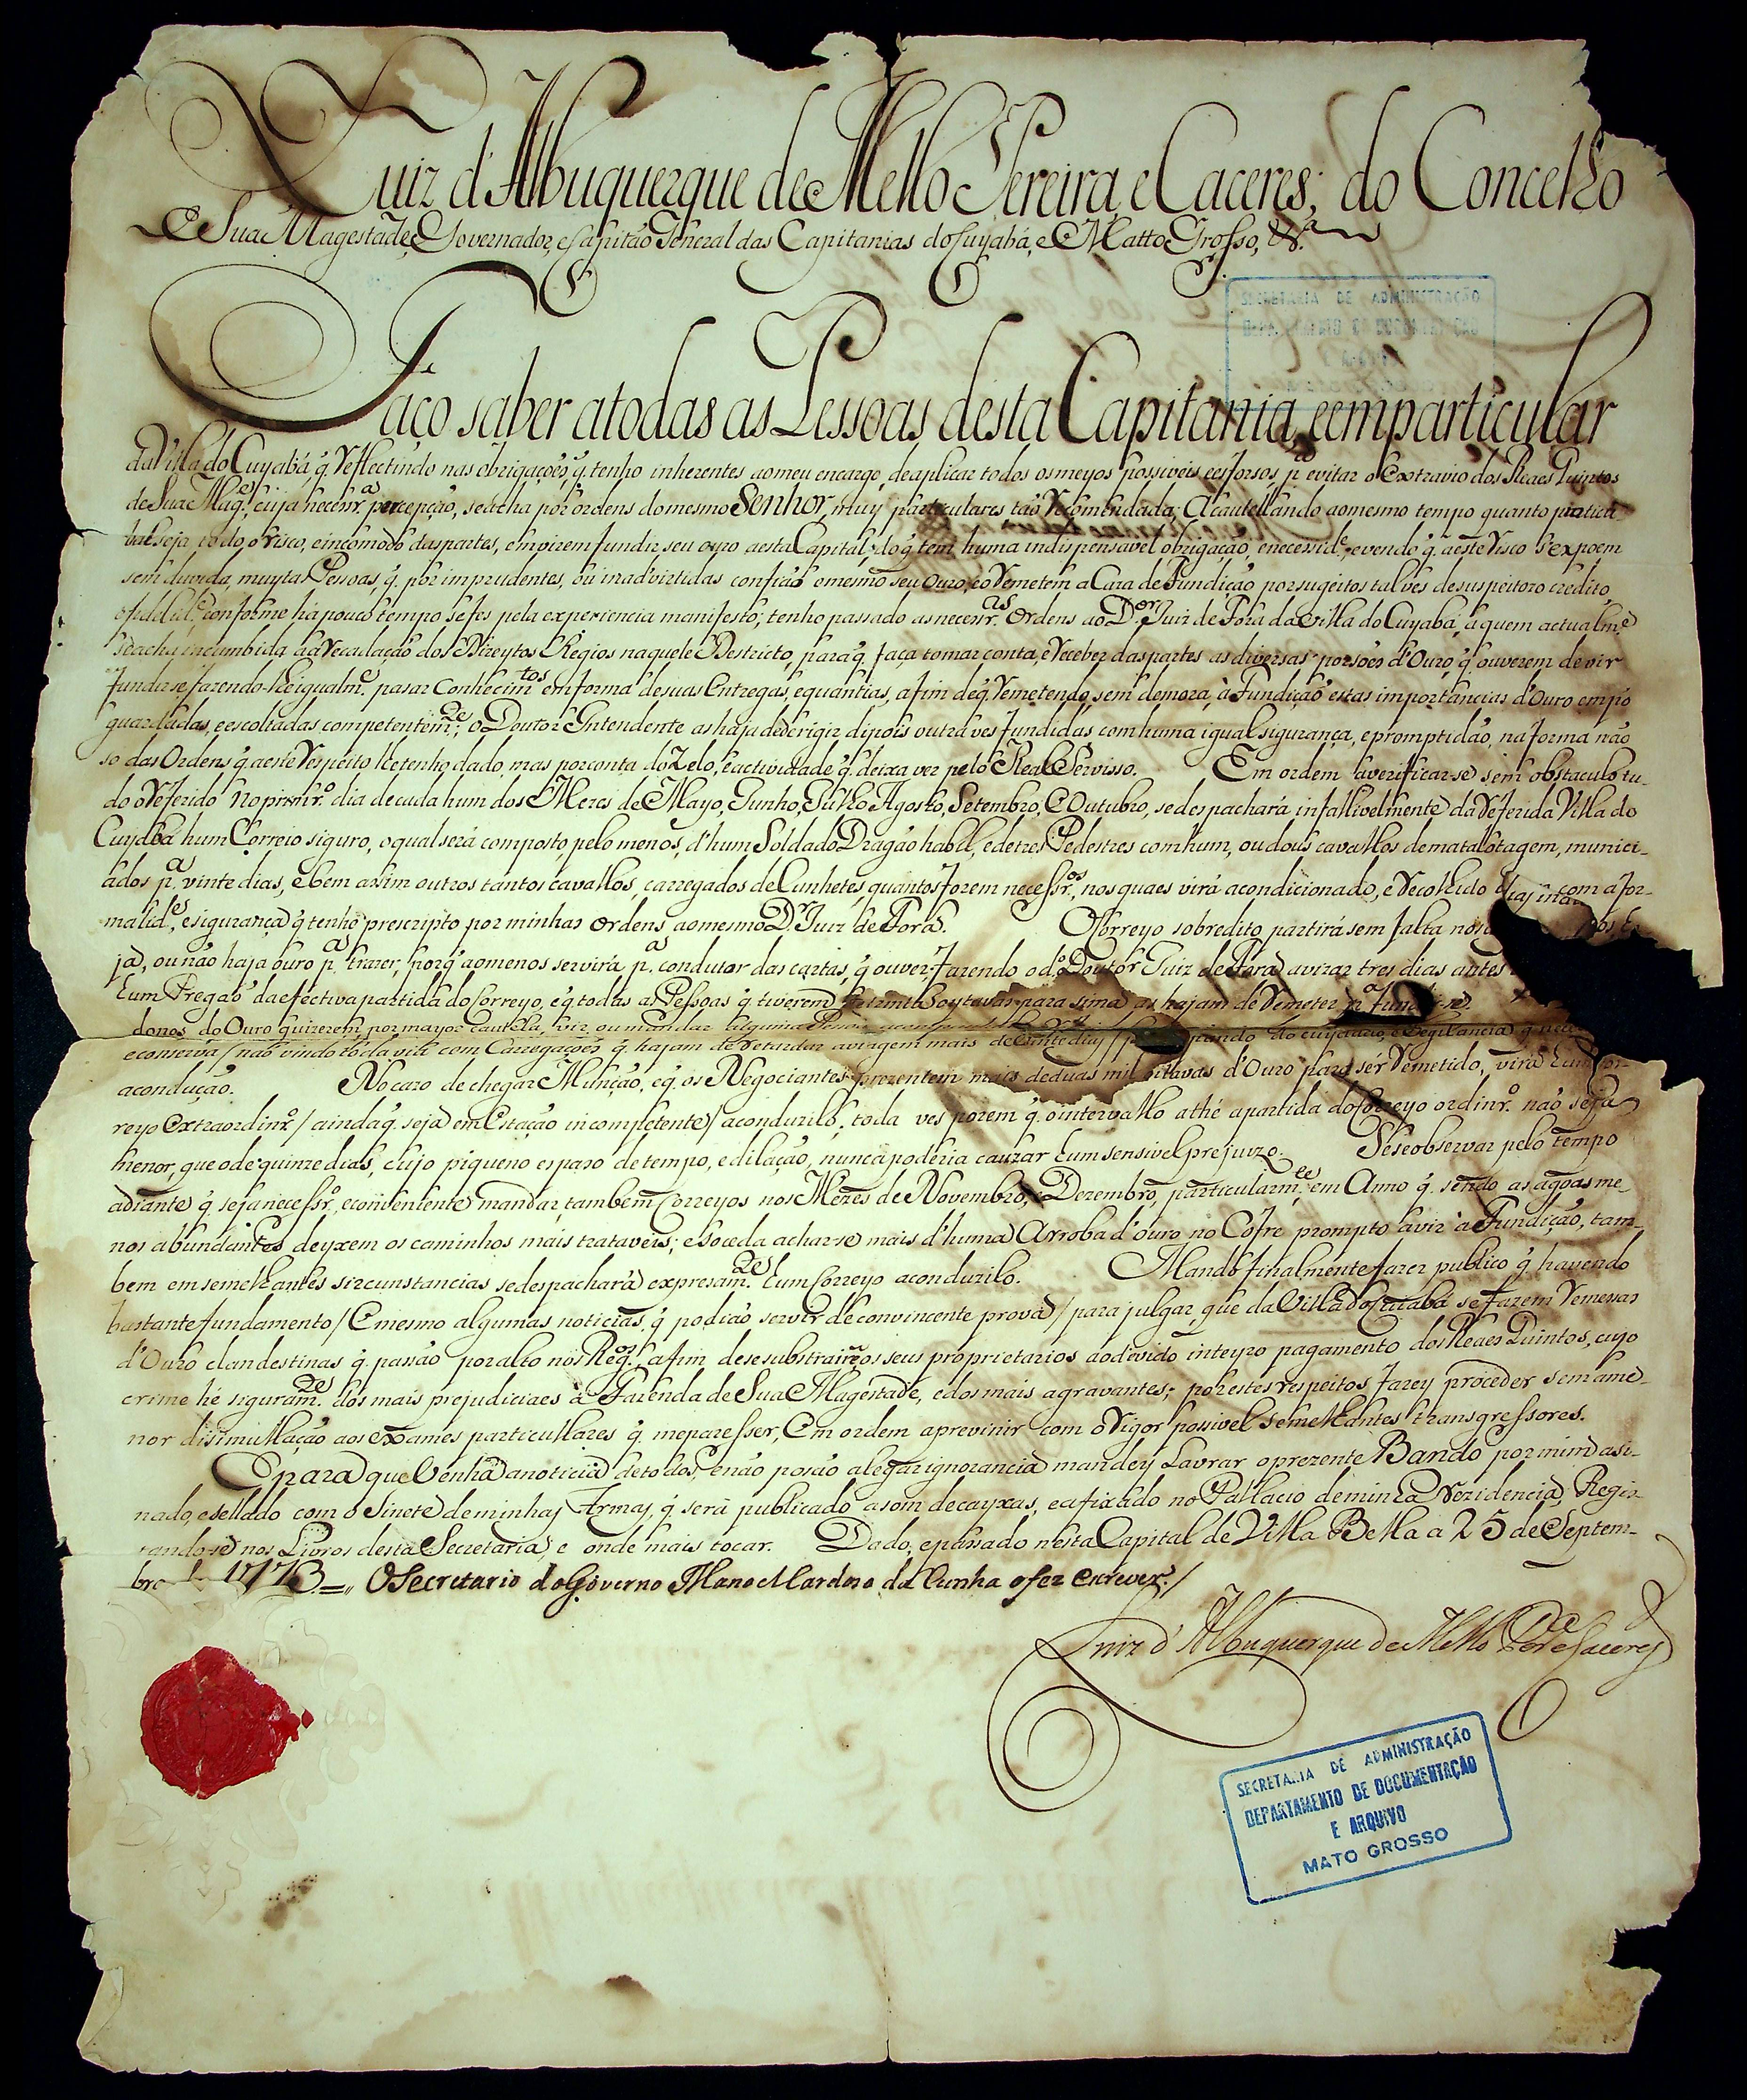 Luiz d'Albuquerque de Mello Pereira, e Caceres; do Concelho
de Sua Magestade, Governador, e Capitão General das Capitanias do Cuyabá, e Matto Grosso, &.ª
SECRETARIA DE ADMINISTRAÇÃO
Faço saber atodas as Pessoas desta Capitania, eemparticular
da Villa do Cuyabá, q̃. reflectindo nas obrigaçoẽs, q̃. tenho inherentes aomeu encargo, deaplicar todos osmeyos possiveis, eesforsos, p.ª evitar o Extravio dos Reaes Quintos
de Sua Mag.e, cuja necess.rª percepção, seacha por ordens domesmo Senhor, muy particulares tão recomendada; Acautellando aomesmo tempo quanto pratica
vel seja todo o risco, eincomodo daspartes, emvirem fundir seu ouro aesta Capital; do q̃ tem huma indispensavel obrigação, enecessid.e, evendo q̃. aeste risco s'expoem
sem duvida, muytas Pessoas, q̃. por imprudentes, ou inadvirtidas confião omesmo seu Ouro, eo remetem a Caza de Fundição por sugeitos talves desuspeitozo credito,
efidelid.e, conforme há pouco tempo sefes pela experiencia manifesto; tenho passado as necess.ras Ordens ao D.or Juiz de Fora da Villa do Cuyabá, a quem actualm.e
seacha incumbida aArrecadação dos Direytos Regios naquele Destricto, para q̃. faça tomar conta, e receber daspartes as diversas porsoẽs d'Ouro, q̃' ouverem de vir
fundirse, fazendo-lhe igualm.e pasar Conhecim.tos emforma desuas Entregas, equantias, afim deq̃. remetendo, sem demora, à Fundição estas importancias d'Ouro empó
guardadas, eescoltadas competentem.te; o Doutor Intendente as haja dederigir dipois outra ves fundidas comhuma igual sigurança, epromptidão, na forma não
só das Ordens q̃. aeste respeito lhetenho dado, mas porconta do Zelo, eactividade q̃. deixa ver pelo Real Servisso. Em ordem averificar-se sem obstaculo tu-
do o referido no prim.ro dia decada hum dos Mezes de Mayo, Junho, Julho, Agosto, Setembro, e Outubro, sedespachará infallivelmente da referida Villa do
Cuyabá hum Correio siguro, oqual será composto, pelo menos, d'hum Soldado Dragão habil, edetres Pedestres comhum, ou dous cavallos dematallotagem, munici-
ados p.ª vinte dias, e bem assim outros tantos cavallos, carregados de Cunhetes, quantos forem necess.ros, nos quaes virá acondicionado, e recolhido com a for-
malid.es, esigurança q̃ tenho prescripto por minhas Ordens aomesmo D.r Juiz de Fora. O Correyo sobredito partirá sem falta nos
ja, ou não haja ouro p.ª trazer, porq̃ aomenos servirá p.ª condutor das cartas, q̃ ouver; fazendo o d.º Doutor Juiz de Fora avizar tres dias antes
hum Pregão da efectiva partida do Correyo, e q̃ todas as Pessoas q̃. tiverem oytavas para sima as hajam de remeter p.ª fundirse
donos do Ouro quizerem por mayor cautela, vir, ou mandar alguma Pesoa
econserva / não vindo todavia com Carregaçoẽs q̃. hajam de retardar aviagem mais de vinte dias
acondução. No cazo de chegar Munção, eq̃. os Negociantes prezentem mais de duas mil oitavas d'Ouro para sér remetido, virá hum Cor-
reyo Extraordin.rº / ainda q̃. seja em Estação incompetente / aconduzilo, toda ves porem q̃. ointervallo athé apartida do Correyo ordin.rº não seja
menor, que ode quinze dias, cujo piqueno espaso detempo, edilação, nunca poderia cauzar hum sensivel prejuizo. Seseobservar pelo tempo
adiante q̃. seja necess.rº, econveniente mandar, tambem Correyos nos Mezes de Novembro, e Dezembro, particularm.te em Anno q̃. sendo as agoas me-
nos abundantes deyxem os caminhos mais trataveis; esoceda achar-se mais d'huma Arroba d'ouro no Cofre prompto avir à Fundição, tam-
bem em semelhantes sircunstancias sedespachará expresam.te hum Correyo aconduzilo. Mando finalmente fazer publico q̃ havendo
bastante fundamento / E mesmo algumas noticias q̃ podião servir deconvincente prova / para julgar, que da Villa do Cuiabá se fazem remessas
d'Ouro clandestinas q̃. passão por alto nos Reg.os, afim desesubstrairem os seus proprietarios aodevido inteyro pagamento dos Reaes Quintos, cujo
crime hé siguram.te dos mais prejudiciaes à Fazenda de Sua Magestade, edos mais agravantes; por estes respeitos farey proceder sem ame-
nor disimullação aos exames particullares q̃. meparesser, Em ordem aprevinir com o rigor possivel semelhantes transgressores.
E para que venha anoticia detodos, enão posão alegar ignorancia mandey Lavrar oprezente Bando por mim asi-
nado, esellado com o Sinete deminhas Armas, q̃. será publicado asom decayxas, eafixado no Pallacio deminha rezidencia, Regis-
tando-se nos Livros desta Secretaria, e onde mais tocar. Dado, epassado nesta Capital de Villa Bella a 25 de Septem-
bro de 1773. O Secretario do Governo Manoel Cardoso da Cunha o fez escrever./
Luiz d'Albuquerque de Mello Per.ª e Caceres
SECRETARIA DE ADMINISTRAÇÃO
DEPARTAMENTO DE DOCUMENTAÇÃO
E ARQUIVO
MATO GROSSO